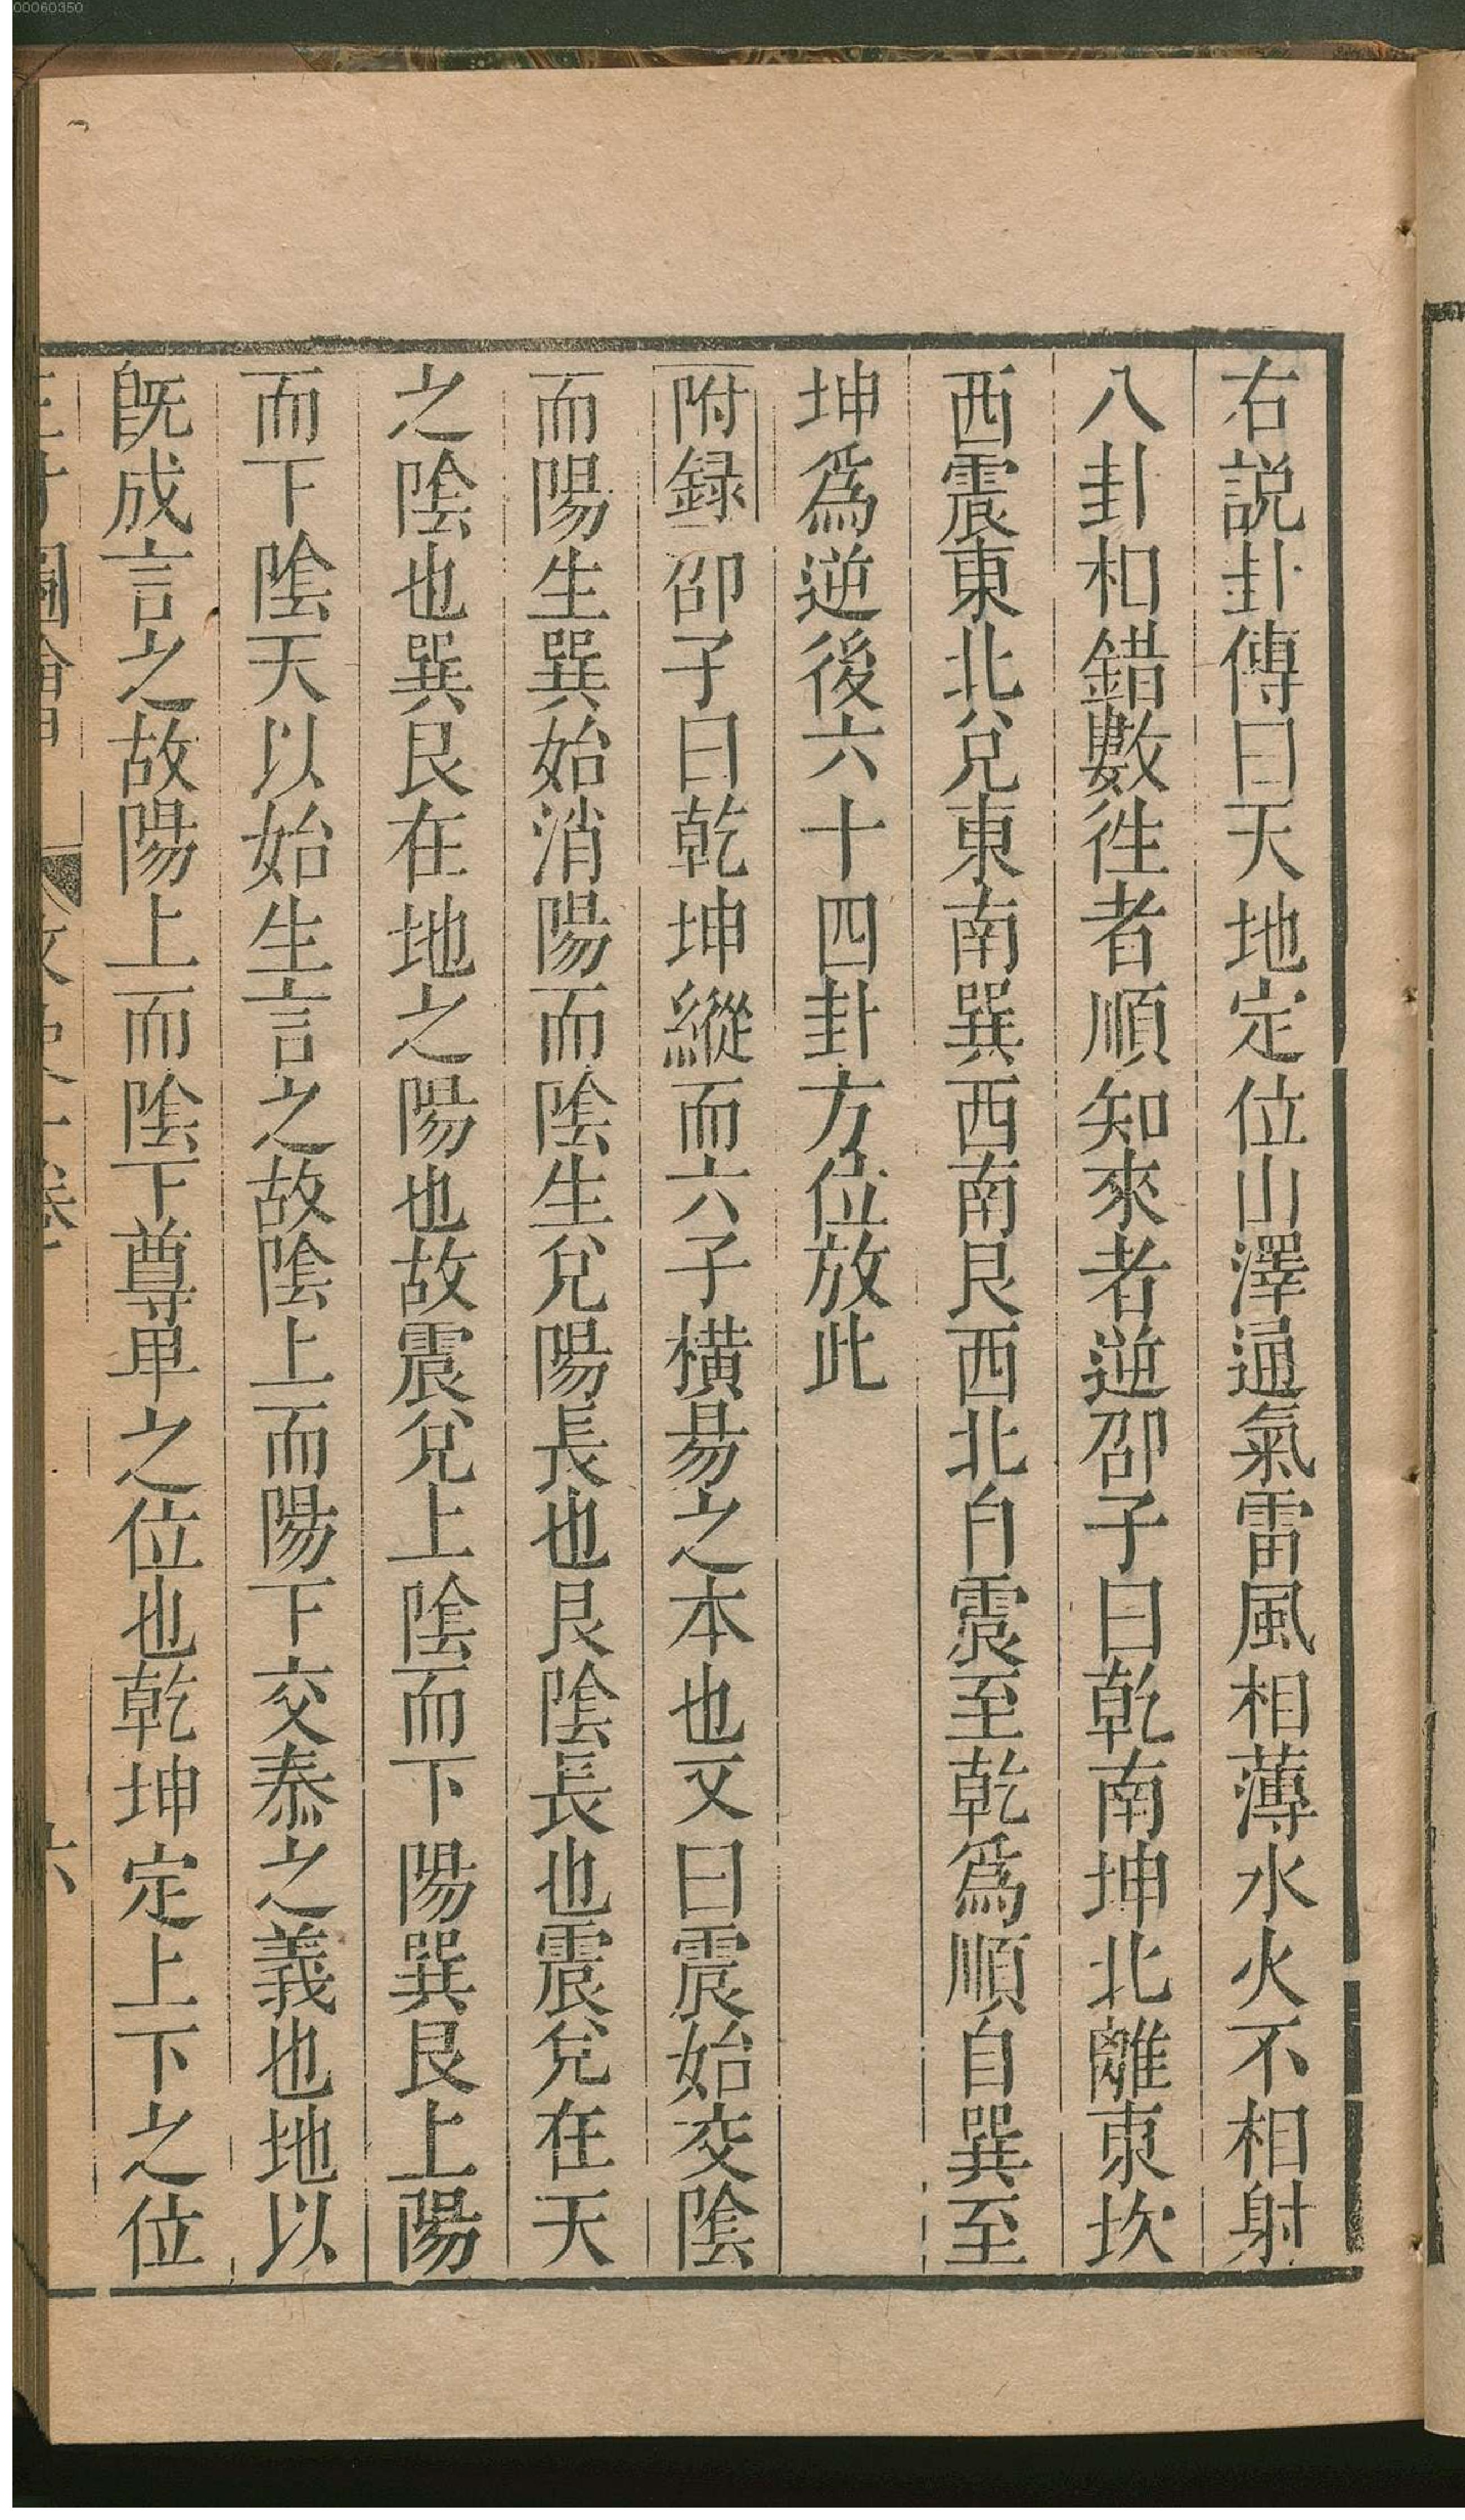 00060350
右説卦傳曰天地定位山澤通氣雷風相薄水火不相射
八卦相錯數徃者順知來者逆邵子曰乾南坤北離東坎
西震東北兌東南巽西南艮西北自震至乾爲順自巽至
坤爲逆後六十四卦方位放此
附録邵子曰乾坤縱而六子橫昜之本也又曰震始交陰
而陽生巽始消陽而陰生兌陽長也艮陰長也震兌在天
之陰也巽艮在地之陽也故震兌上陰而下陽巽艮上陽
而下陰天以始生言之故陰上而陽下交泰之義也地以
旣成言之故陽上而陰下尊卑之位也乾坤定上下之位
六